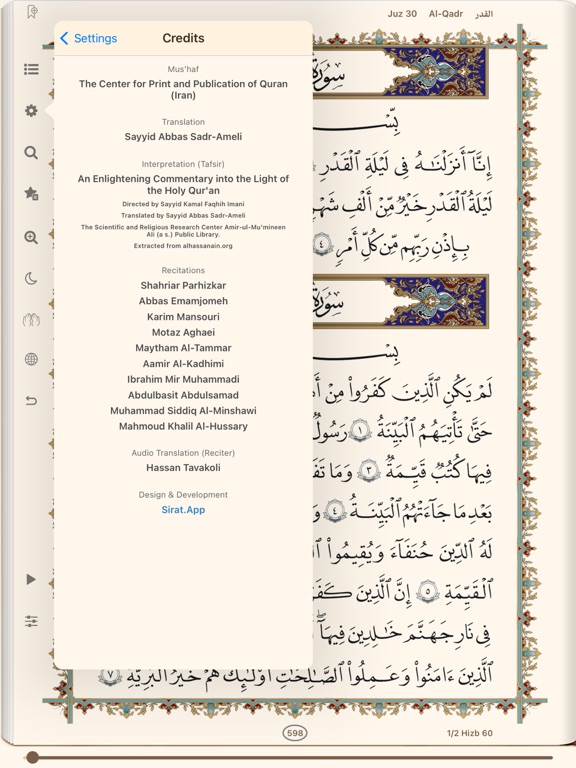 Juz 30 Al-Qadr القدر
Settings
Credits
Mus'haf
The Center for Print and Publication of Quran
(Iran)
Translation
Sayyid Abbas Sadr-Ameli
Interpretation (Tafsir)
An Enlightening Commentary into the Light of
the Holy Qur'an
Directed by Sayyid Kamal Faqhih Imani
Translated by Sayyid Abbas Sadr-Ameli
The Scientific and Religious Research Center Amir-ul-Mu'mineen
Ali (a s.) Public Library.
Extracted from alhassanain.org
Recitations
Shahriar Parhizkar
Abbas Emamjomeh
Karim Mansouri
Motaz Aghaei
Maytham Al-Tammar
Aamir Al-Kadhimi
Ibrahim Mir Muhammadi
Abdulbasit Abdulsamad
Muhammad Siddiq Al-Minshawi
Mahmoud Khalil Al-Hussary
Audio Translation (Reciter)
Hassan Tavakoli
Design & Development
Sirat.App
سورة
بِسْـ
إِنَّآ أَنزَلْنَـٰهُ فِى لَيْلَةِ ٱلْقَدْرِ
لَيْلَةُ ٱلْقَدْرِ خَيْرٌ مِّنْ أَلْفِ شَهْرٍ
بِإِذْنِ رَبِّهِم مِّن كُلِّ أَمْرٍ ٤
سورة
بِسْـ
لَمْ يَكُنِ ٱلَّذِينَ كَفَرُوا۟ مِنْ
حَتَّىٰ تَأْتِيَهُمُ ٱلْبَيِّنَةُ ١ رَسُولٌ
فِيهَا كُتُبٌ قَيِّمَةٌ ٣ وَمَا
بَعْدِ مَا جَآءَتْهُمُ ٱلْبَيِّنَةُ ٤
لَهُ ٱلدِّينَ حُنَفَآءَ وَيُقِيمُوا۟
ٱلْقَيِّمَةِ ٥ إِنَّ ٱلَّذِينَ
فِى نَارِ جَهَنَّمَ خَـٰلِدِينَ فِيهَآ
ٱلَّذِينَ ءَامَنُوا۟ وَعَمِلُوا۟ ٱلصَّـٰلِحَـٰتِ أُو۟لَـٰٓئِكَ هُمْ خَيْرُ ٱلْبَرِيَّةِ ٧
598
1/2 Hizb 60